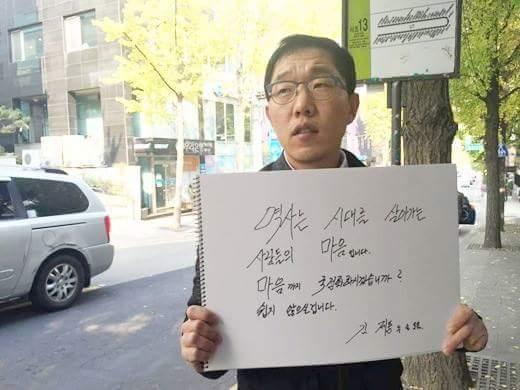 13
역사는 시대를 살아가는
사람들의 마음입니다.
마음까지 국정화하시겠습니까?
쉽지 않으실겁니다.
김제동